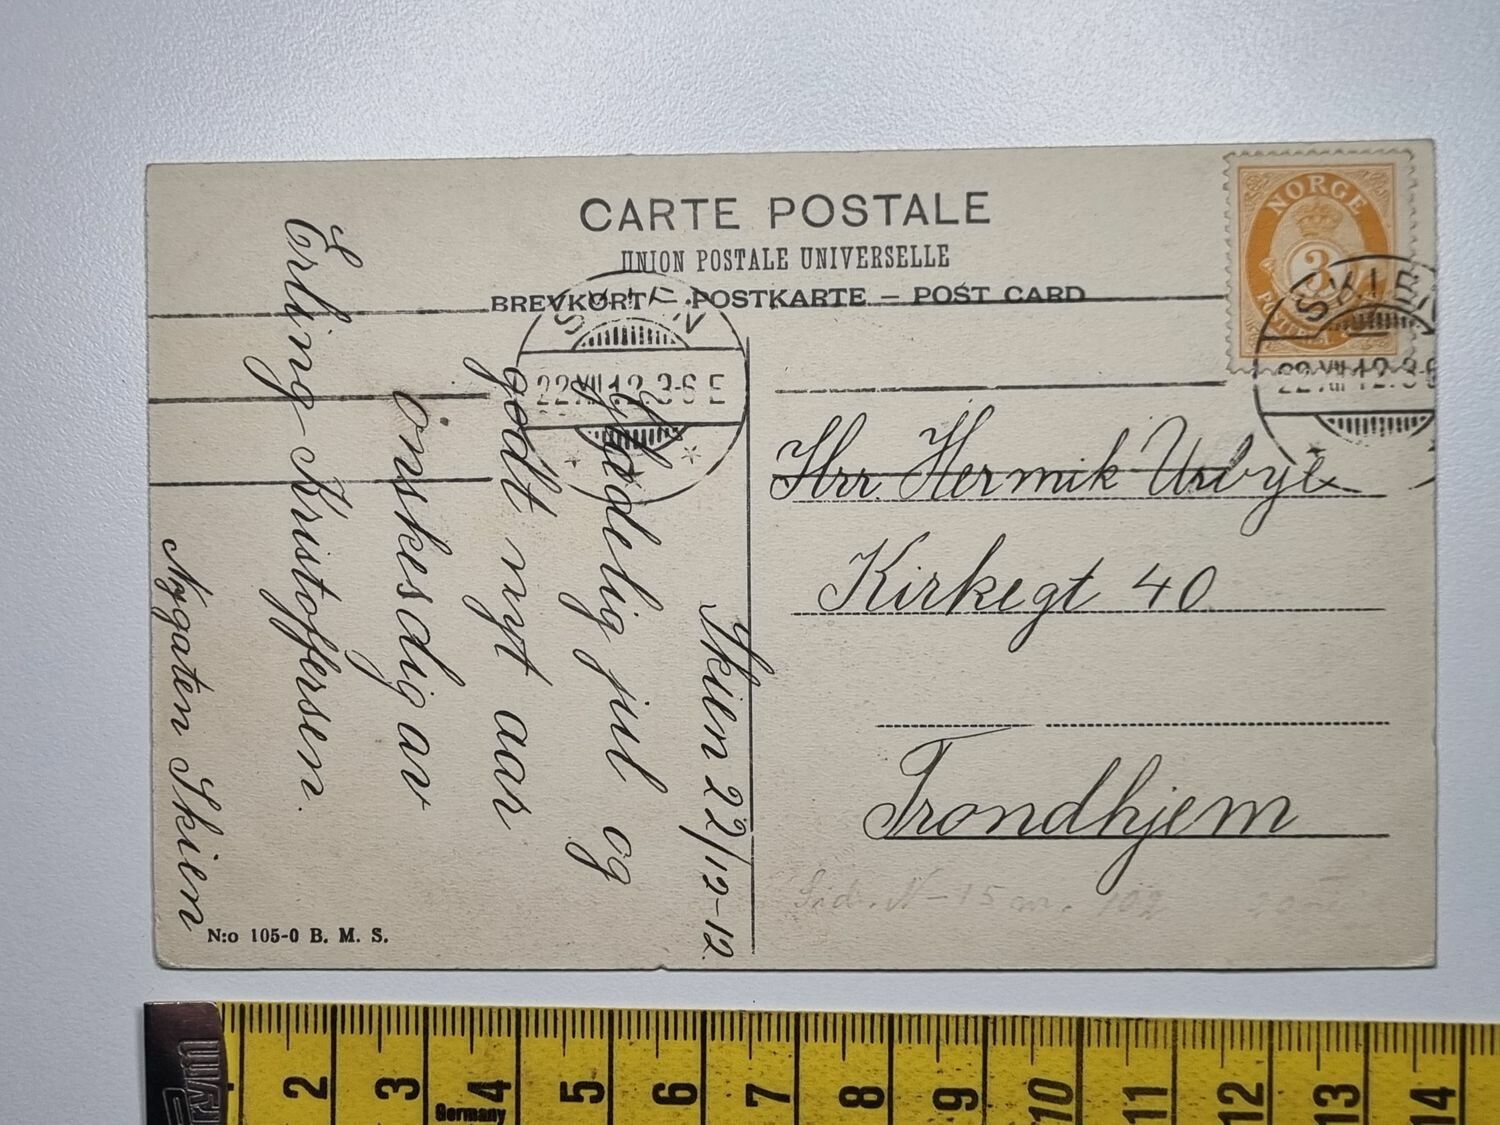 CARTE POSTALE
UNION POSTALE UNIVERSELLE
BREVKORT — POSTKARTE — POST CARD
NORGE
3
POSTFRIM
SKIEN
22 XII 12. 3-6 E
SKIEN
22 XII 12. 3-6
Skien 22/12-12.
Glædelig jul og
godt nyt aar
önskes dig av
Erling Kristoffersen.
Nygaten Skien
Hrr. Henrik
Kirkegt 40
Trondhjem
N:o 105-0 B. M. S.
2 3 4 5 6 7 8 9 10 11 12 13 14
Germany